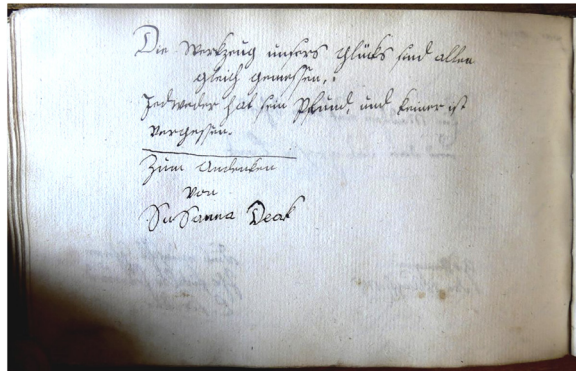 Die Werkzeug unsers Glücks sind allen
gleich gemessen,
Jedweder hat sein Pfund, und keiner ist
vergessen.
Zum Andenken
von
SuSanna Deak